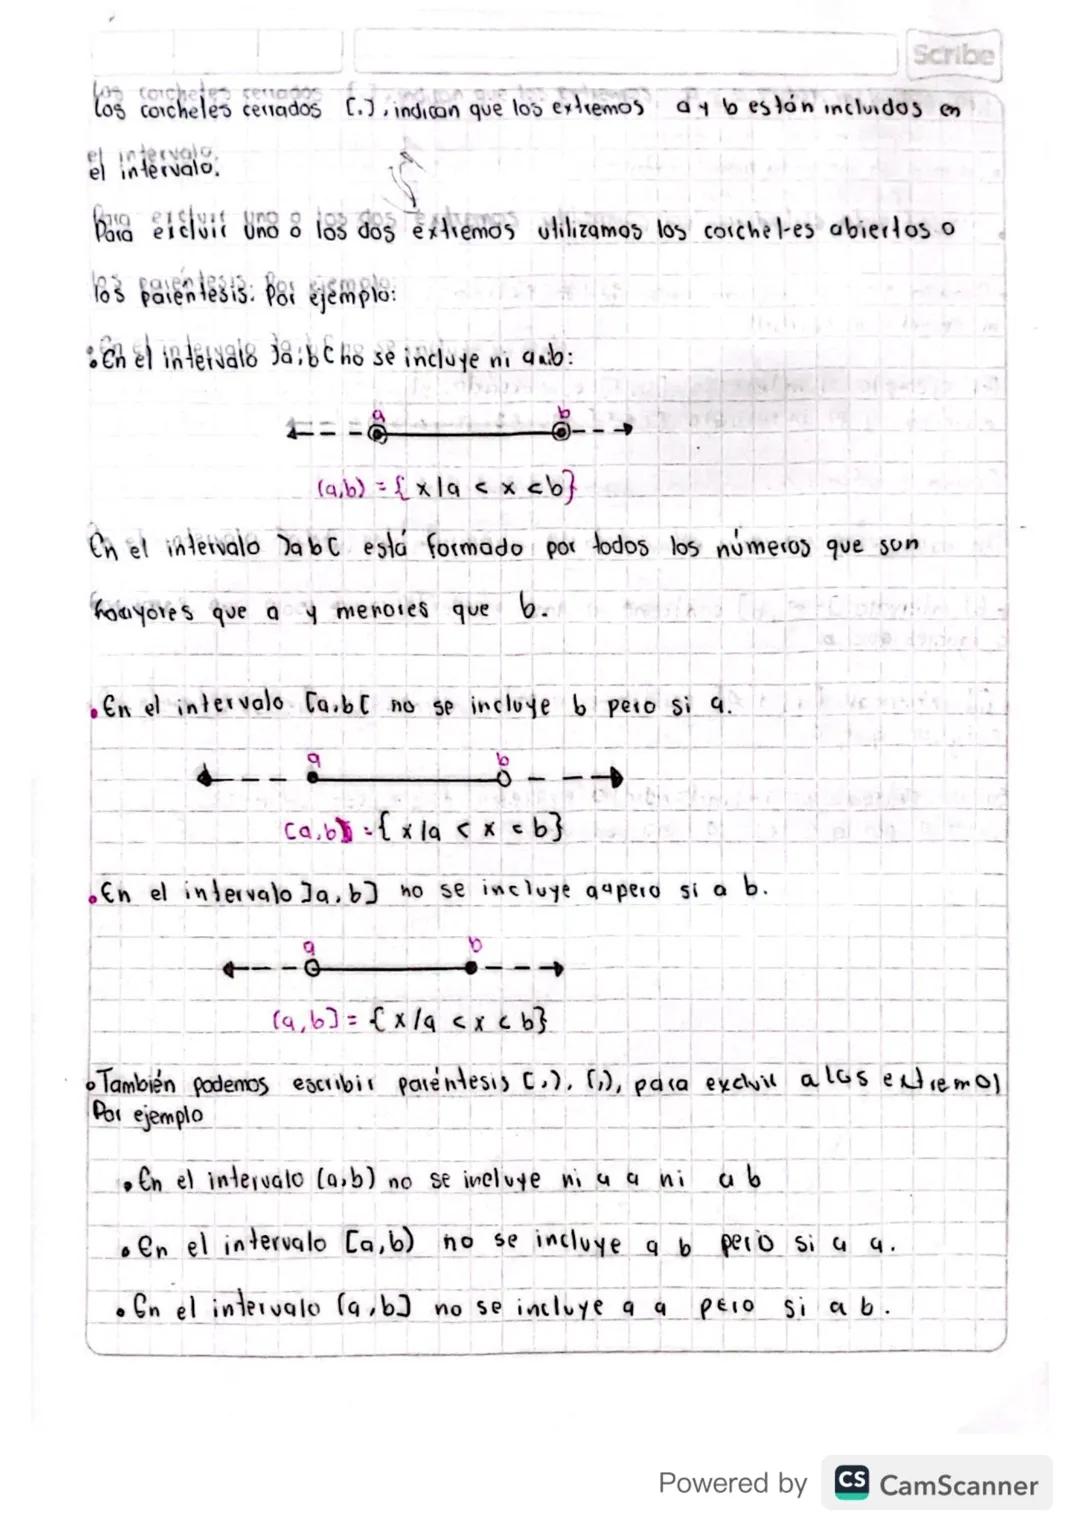 Scribe
Los corcheles cerrados [.], indican que los extremos a y b están incluidos en
el intervalo.
Para excluir uno o los dos extremos utilizamos los corchetes abiertos o
los paréntesis. Por ejemplo:
En el intervalo ]a;b[ no se incluye ni a ni b:
a b
(a,b) = { x/a < x < b}
En el intervalo ]a b[ está formado por todos los números que son
mayores que a y menores que b.
• En el intervalo [a,b[ no se incluye b pero si a.
a b
[a,b) = { x/a < x < b}
• En el intervalo ]a,b] no se incluye a pero si a b.
a b
(a,b] = { x/a < x < b}
• También podemos escribir paréntesis para excluir a los extremos
Por ejemplo
• En el intervalo (a,b) no se incluye ni a a ni a b
• En el intervalo [a,b) no se incluye a b pero si a a.
• En el intervalo (a,b] no se incluye a a pero si a b.
Powered by CS CamScanner